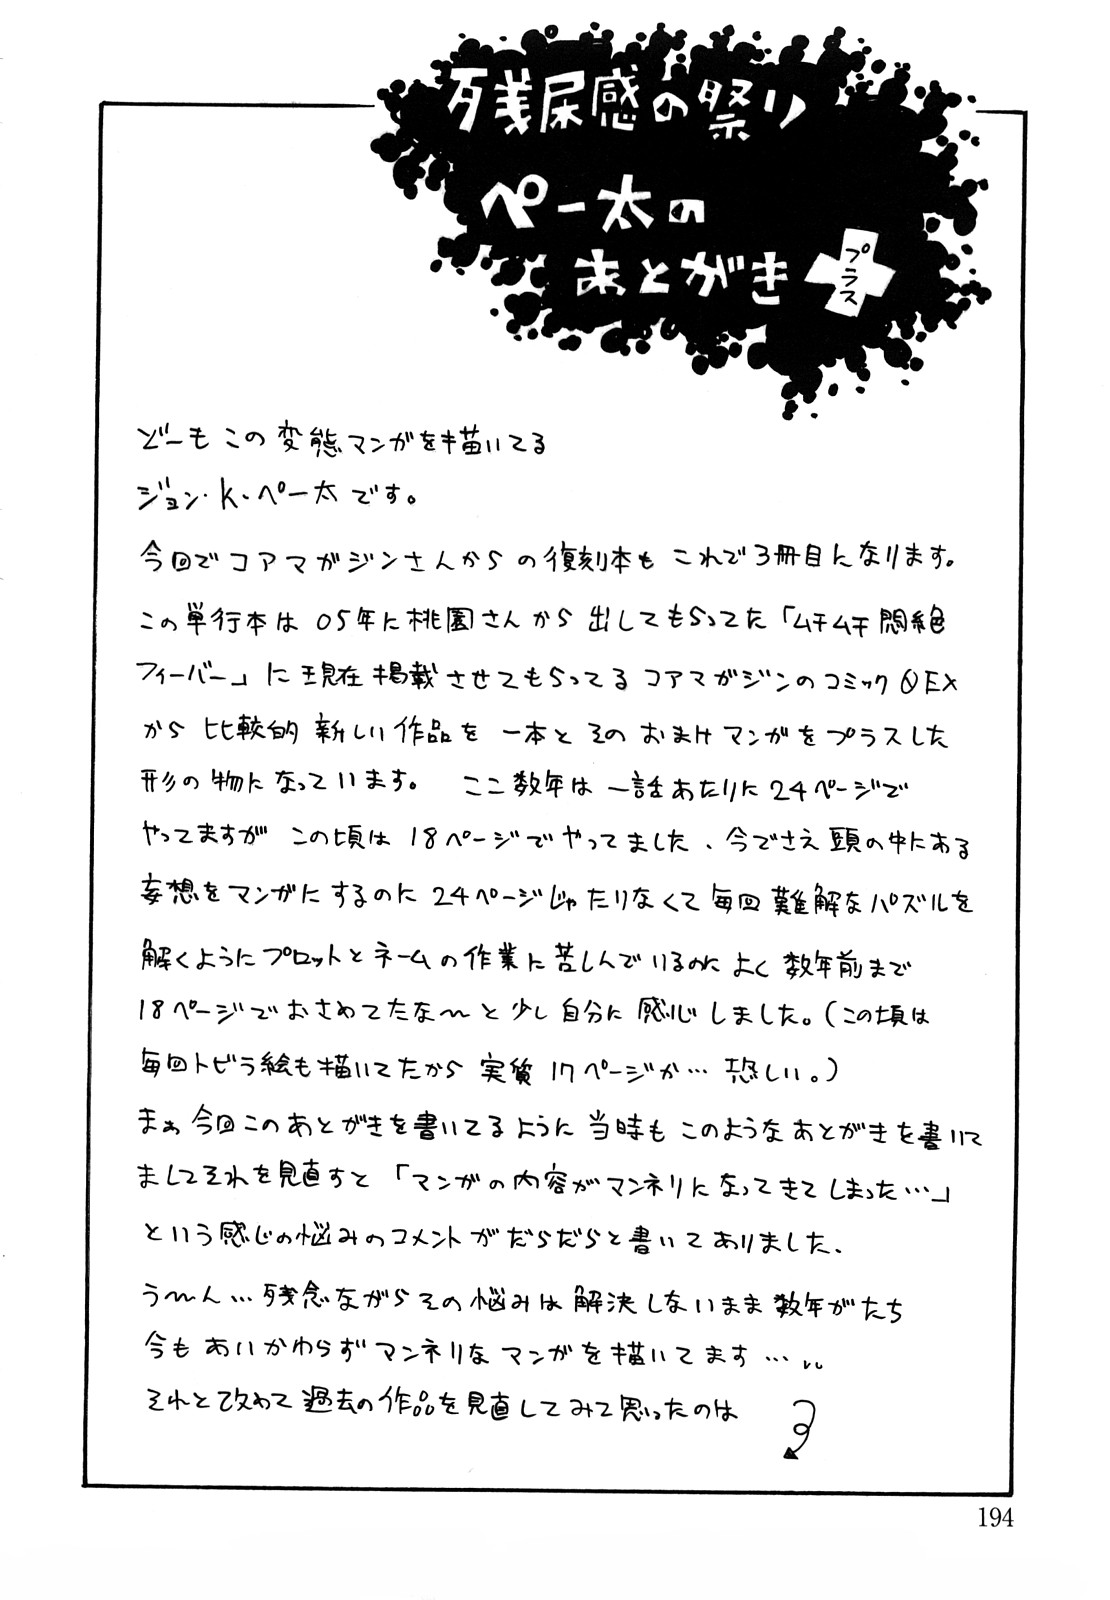 残尿感の祭り
ペー太の
あとがき
プラス
どーもこの変態マンガを描いてる
ジョン・K・ペー太です。
今回でコアマガジンさんからの復刻本もこれで3冊目になります。
この単行本は05年に桃園さんから出してもらってた「ムチムチ悶絶
フィーバー」に現在掲載させてもらってるコアマガジンのコミック0EX
から比較的新しい作品を一本とそのおまけマンガをプラスした
形の物になっています。 ここ数年は一話あたりに24ページで
やってますがこの頃は18ページでやってました、今でさえ頭の中にある
妄想をマンガにするのに24ページじゃたりなくて毎回難解なパズルを
解くようにプロットとネームの作業に苦しんでいるのによく数年前まで
18ページでおさめてたな〜と少し自分に感心しました。(この頃は
毎回トビラ絵も描いてたから実質17ページか…恐しい。)
まぁ今回このあとがきを書いてるように当時もこのようなあとがきを書いて
ましてそれを見直すと「マンガの内容がマンネリになってきてしまった…」
という感じの悩みのコメントがだらだらと書いてありました、
う〜ん…残念ながらその悩みは解決しないまま数年がたち
今もあいかわらずマンネリなマンガを描いてます…
それと改めて過去の作品を見直してみて思ったのは
194